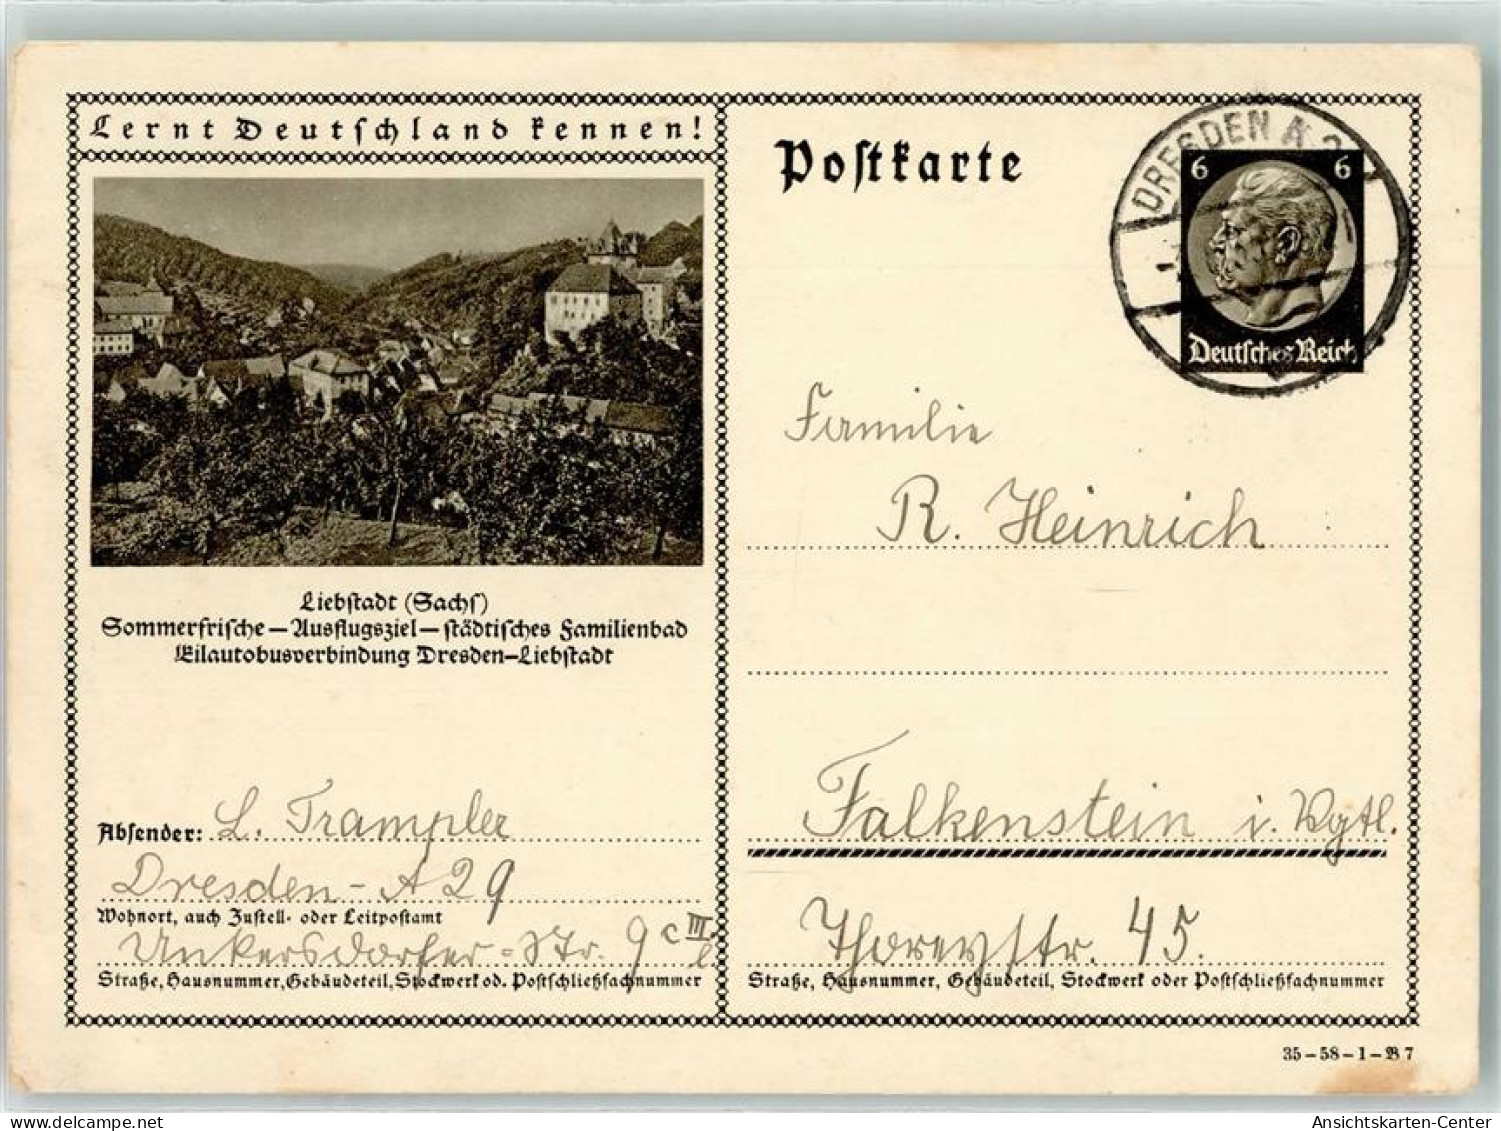 Lernt Deutſchland kennen!
Poſtkarte
DRESDEN A
6 6
Deutſches Reich
Liebſtadt (Sachſ)
Sommerfriſche — Ausflugsziel — ſtädtiſches Familienbad
Eilautobusverbindung Dresden–Liebſtadt
Familie
R. Heinrich
Falkenstein i. Vgtl.
Thoreystr. 45.
Straße, Hausnummer, Gebäudeteil, Stockwerk oder Poſtſchließfachnummer
Abſender: L. Trampler
Dresden-A 29
Wohnort, auch Zuſtell- oder Leitpoſtamt
Unkersdorfer-Str. 9c III l
Straße, Hausnummer, Gebäudeteil, Stockwerk od. Poſtſchließfachnummer
35–58–1–B 7
Ansichtskarten-Center
delcampe.net